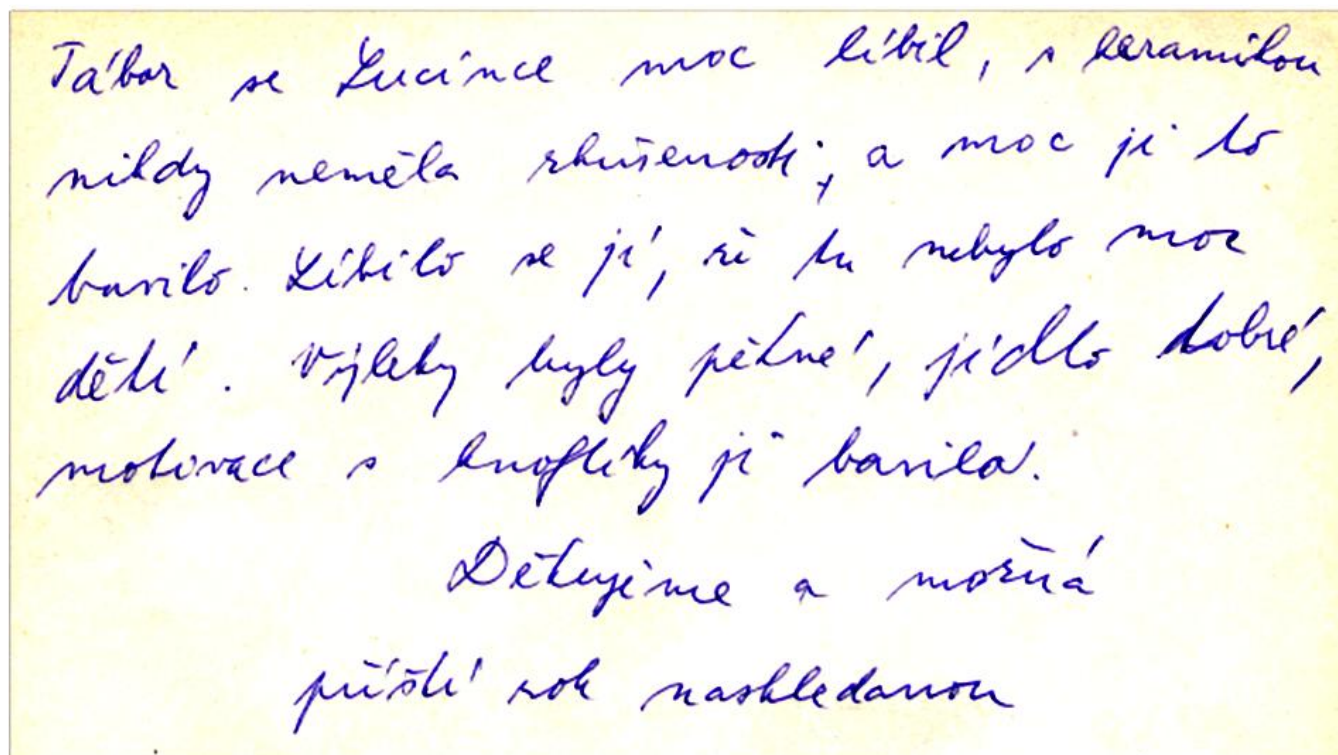 Tábor se Lucince moc líbil, s keramikou
nikdy neměla zkušenosti, a moc ji to
bavilo. Líbilo se jí, že tu nebylo moc
dětí. Výlety byly pěkné, jídlo dobré,
motivace s knoflíky ji bavila.
Děkujeme a možná
příští rok nashledanou